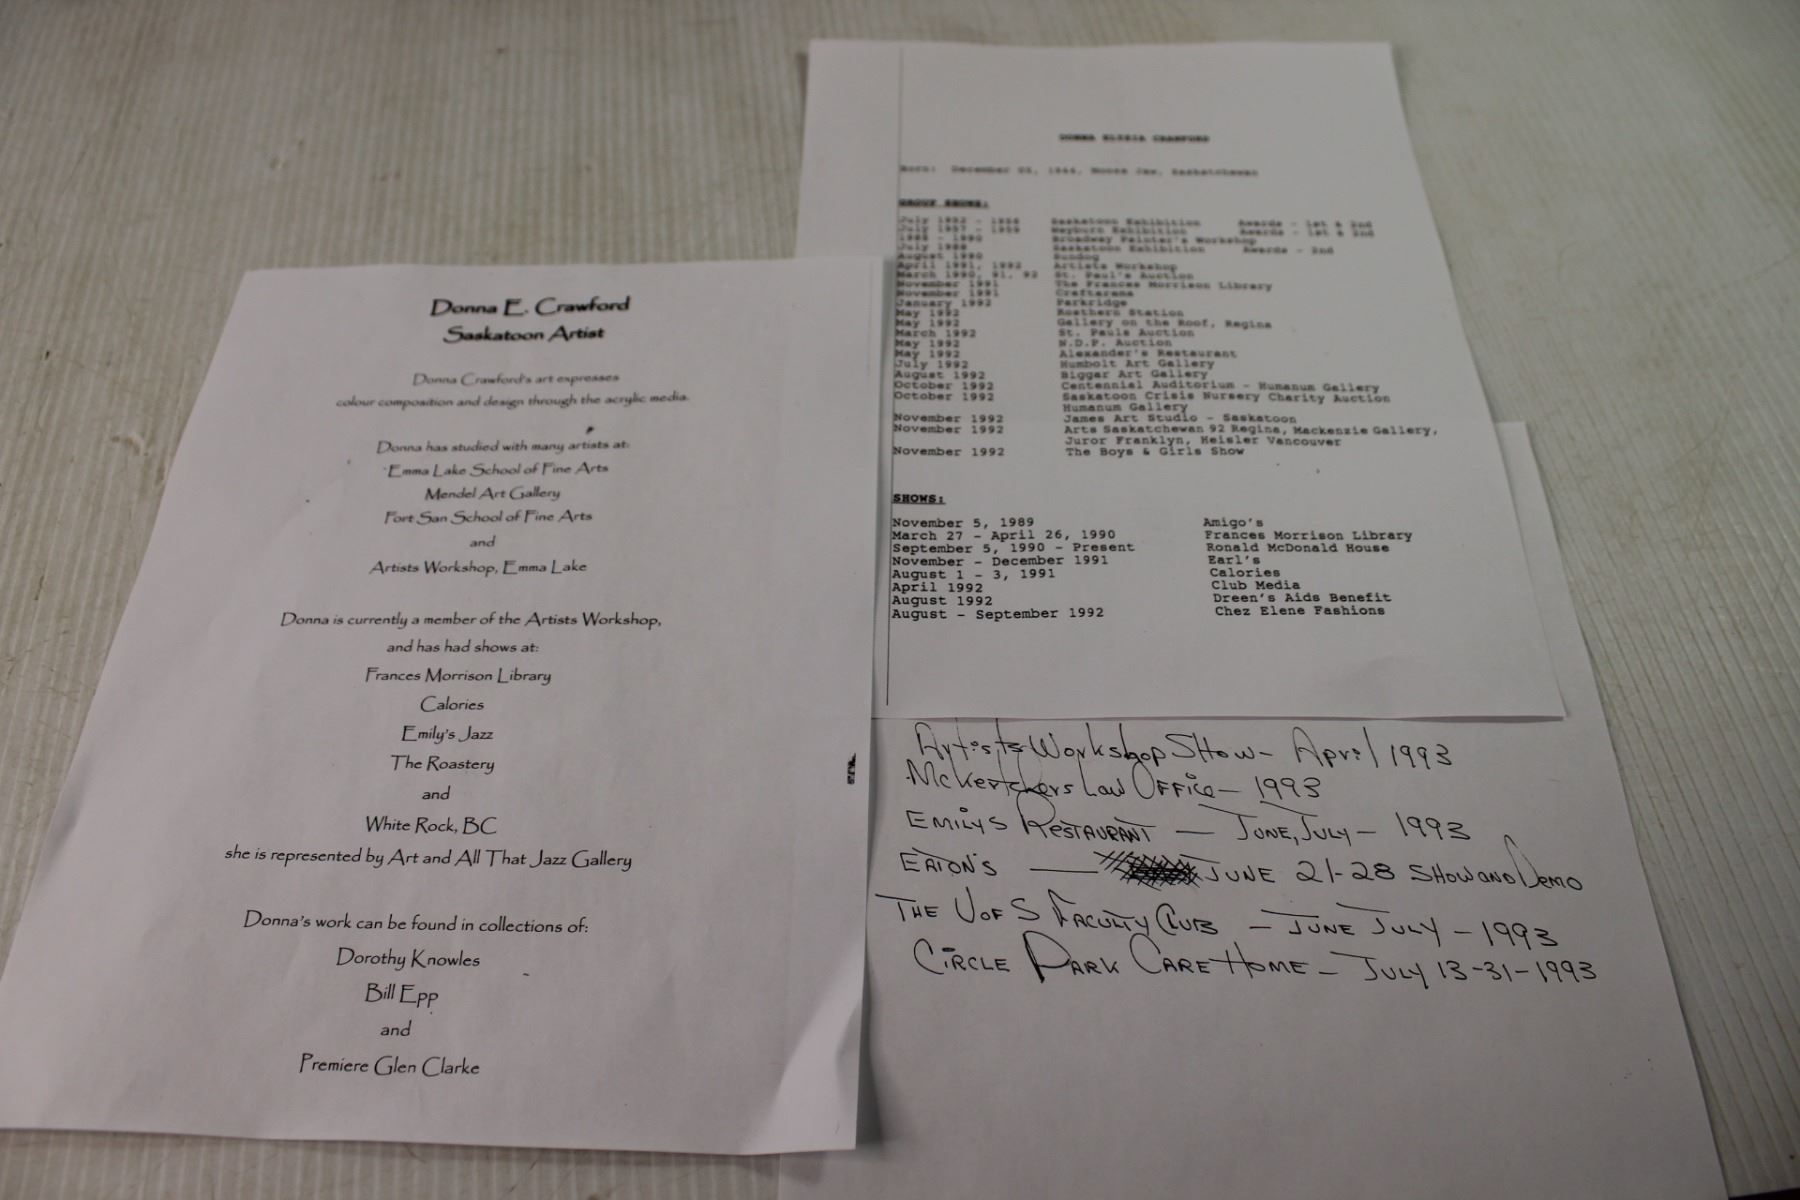 Donna E. Crawford
Saskatoon Artist
Donna Crawford's art expresses
colour composition and design through the acrylic media.
Donna has studied with many artists at:
Emma Lake School of Fine Arts
Mendel Art Gallery
Fort San School of Fine Arts
and
Artists Workshop, Emma Lake
Donna is currently a member of the Artists Workshop,
and has had shows at:
Frances Morrison Library
Calories
Emily's Jazz
The Roastery
and
White Rock, BC
she is represented by Art and All That Jazz Gallery
Donna's work can be found in collections of:
Dorothy Knowles
Bill Epp
and
Premiere Glen Clarke
DONNA CRAWFORD
Born: December Moose Jaw, Saskatchewan
GROUP SHOWS:
July Saskatoon Exhibition Awards - 1st & 2nd
July Weyburn Exhibition Awards - 1st & 2nd
- 1990 Broadway Painter's Workshop
July Saskatoon Exhibition Awards - 2nd
August 1990 Sundog
April 1991, 1992 Artists Workshop
March 1990, 91, 92 St. Paul's Auction
November 1991 The Frances Morrison Library
November 1991 Craftarama
January 1992 Parkridge
May 1992 Rosthern Station
May 1992 Gallery on the Roof, Regina
March 1992 St. Pauls Auction
May 1992 N.D.P. Auction
May 1992 Alexander's Restaurant
July 1992 Humbolt Art Gallery
August 1992 Biggar Art Gallery
October 1992 Centennial Auditorium - Humanum Gallery
October 1992 Saskatoon Crisis Nursery Charity Auction
Humanum Gallery
November 1992 James Art Studio - Saskatoon
November 1992 Arts Saskatchewan 92 Regina, Mackenzie Gallery,
Juror Franklyn, Heisler Vancouver
November 1992 The Boys & Girls Show
SHOWS:
November 5, 1989 Amigo's
March 27 - April 26, 1990 Frances Morrison Library
September 5, 1990 - Present Ronald McDonald House
November - December 1991 Earl's
August 1 - 3, 1991 Calories
April 1992 Club Media
August 1992 Dreen's Aids Benefit
August - September 1992 Chez Elene Fashions
Artists Workshop Show - April 1993
McKertchers Law Office - 1993
EMILYS RESTAURANT - JUNE, JULY - 1993
EATON'S - JUNE 21-28 SHOW AND DEMO
THE U OF S FACULTY CLUB - JUNE JULY - 1993
CIRCLE PARK CARE HOME - JULY 13-31-1993